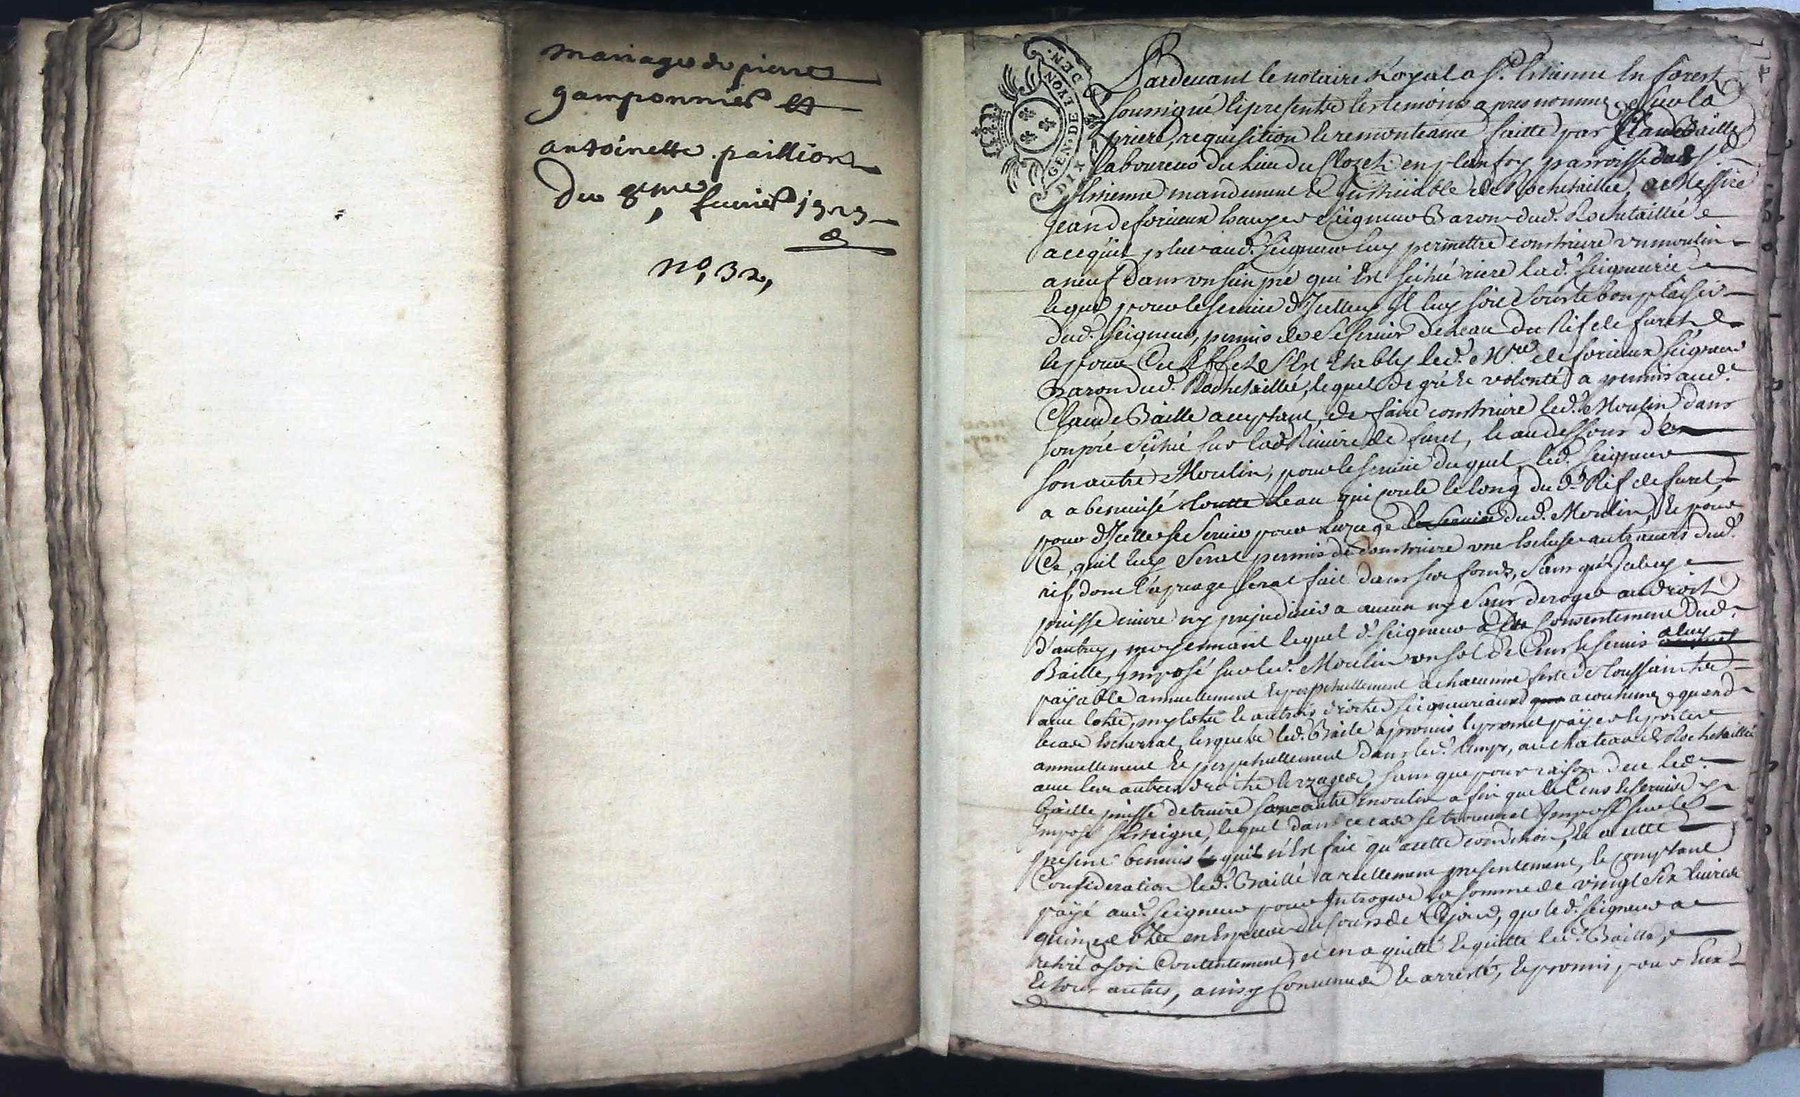 mariage de pierre
gamponnier et
antoinette paillion
du 8eme feurier 1727
no, 32,
GEN. DE LYON
DIX DEN.
Pardeuant le notaire Royal a St. Estienne En forest
soussigné Et presents les temoins apres nommes, sur la
priere, requisition & remontrance faitte par Claude Baille
laboureur du lieu du Clozet en planfoy parroisse dud. St.
Estienne mandement & Justiciable de Rochetaillée, a Messire
Jean de forieux Seigneur Baron dud. Rochetaillée
a ce qu'il plut aud. Seigneur luy permettre construire un moulin
a neuf dans un sien pré qui Est scitué riere lad. Seigneurie
lequel pour le seruice d'Icelluy Il luy soit sous le bon plaisir
dud. Seigneur, permis de se seruir de l'eau du Rif de furet &
Et pour Cet Effet s'Est Etably led. Mre. de forieux Seigneur
Baron dud. Rochetaillée, lequel de gré & volonté a permis aud.
Claude Baille acceptant, de faire construire led. Moulin dans
son pré scitué sur lad. Riuiere de furet, & au dessous d'un
son autre Moulin, pour le seruice duquel led. Seigneur
a abeneuisé toutte l'eau qui coule le long du d. Rif de furet,
pour d'Icelle se seruir pour l'uzage dud. Moulin, Et pour
Ce, quil luy Serat permis de Construire une Escluse au trauers dud.
rif, dont l'apuage serat fait dans ses fonds, sans que Jaluy
puisse nuire ny prejudicier a aucun ny sans deroger au droit
d'autruy, moyennant lequel d. Seigneur a du Consentement dud.
Baille, Imposé sur led. Moulin un sol de Cens & seruis
payable annuellement & perpetuellement a chacunne feste de Toussaints
auec lods, my lods & autres droits seigneuriaux acoutumes quand
le cas Escherrat, lesquels led. Baille a promis & promet payer & porter
annuellement & perpetuellement dans led. temps, au chateau de Rochetaillée
auec les autres droits & uzages sans que pour raison de ce led.
Baille puisse detruire son autre moulin a fin que le Cens & seruice
Imposé s'Esteigne, lequel dans ce cas se trouuerat Imposé sur le
present beneuis quil n'Est fait qu'a cette condition, Et a cette
Consideration led. Baille a reellement presentement, & comptant
payé aud. Seigneur pour Introges la somme de vingt six liures
quinze sols en Especes de Cours de Ce jour, que led. Seigneur a
retiré a son Contentement, et en a quitté & quitte led. Baille,
Et tous autres, ainsy Conuenu & arresté, & promis pour Eux